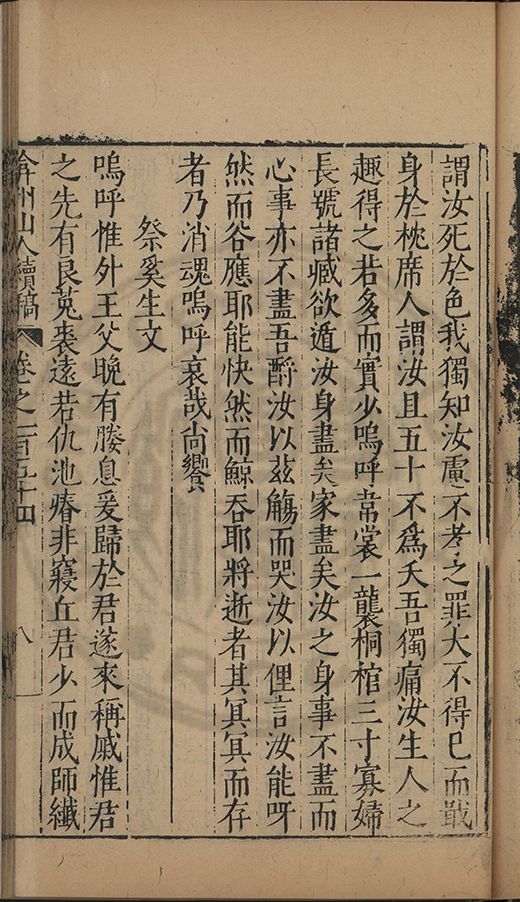 謂汝死於色我獨知汝慮不孝之罪大不得已而戕
身於枕席人謂汝且五十不爲夭吾獨痛汝生人之
趣得之若多而實少嗚呼常裳一襲桐棺三寸寡婦
長號諸臧欲遁汝身盡矣家盡矣汝之身事不盡而
心事亦不盡吾酹汝以茲觴而哭汝以俚言汝能呀
然而谷應耶能快然而鯨吞耶將逝者其冥冥而存
者乃消魂嗚呼哀哉尚饗
祭奚生文
嗚呼惟外王父晚有媵息爰歸於君遂來稱戚惟君
之先有良菟裘遠若仇池瘠非寢丘君少而成師纖
弇州山人續稿 卷之一百五十四 八